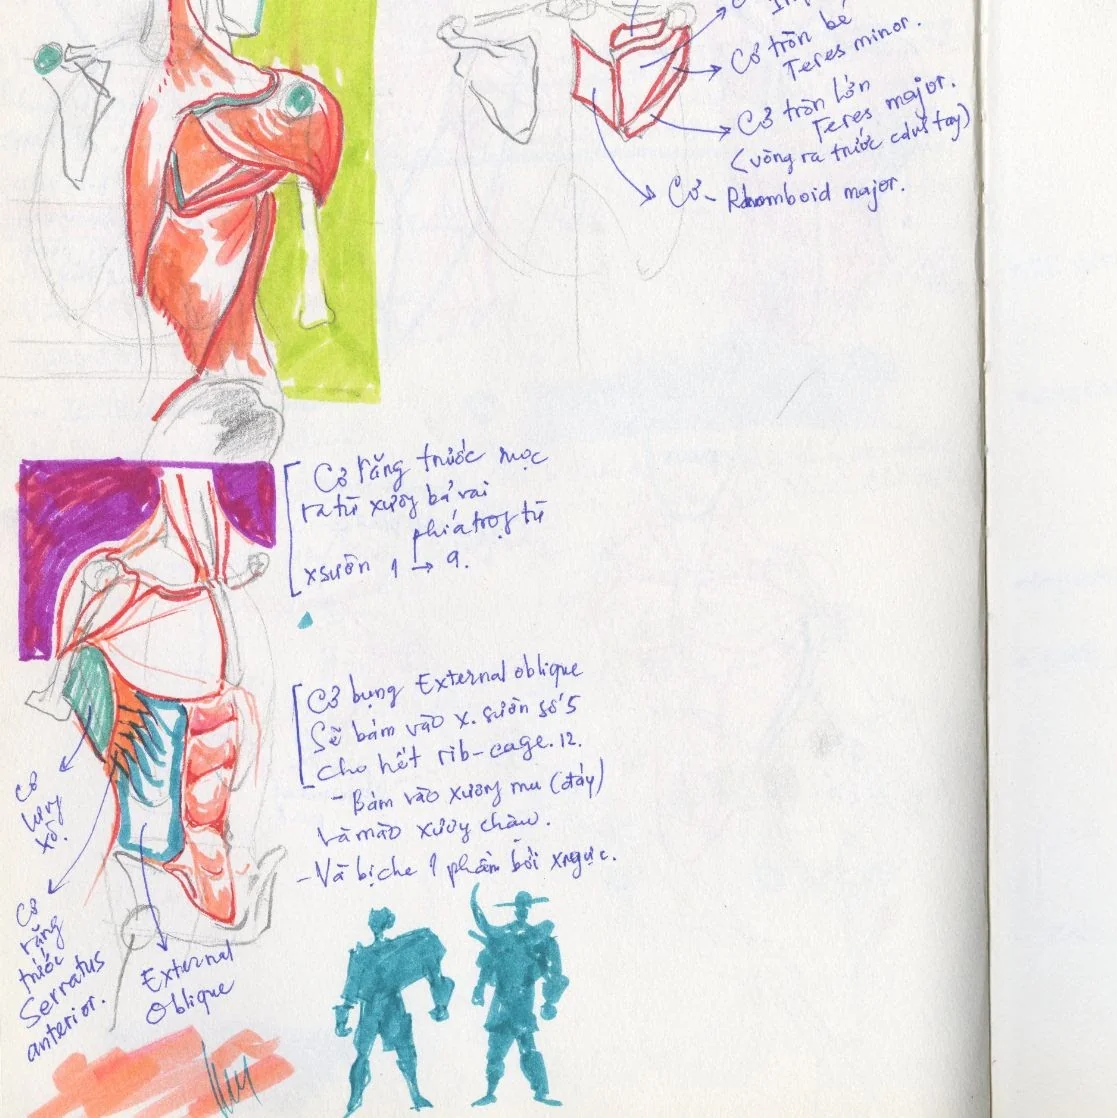 Cơ tròn bé
Teres minor.
Cơ tròn lớn
Teres major.
(vòng ra trước cánh tay)
Cơ - Rhomboid major.
Cơ răng trước mọc
ra từ xương bả vai
phía trong từ
xsườn 1 → 9.
Cơ bụng External oblique
Sẽ bám vào x. sườn số 5
cho hết rib-cage. 12.
- Bám vào xương mu (đáy)
và mào xương chậu.
- Và bị che 1 phần bởi x ngực.
Cơ
lưng
xô.
Cơ
răng
trước
Serratus
anterior.
External
Oblique